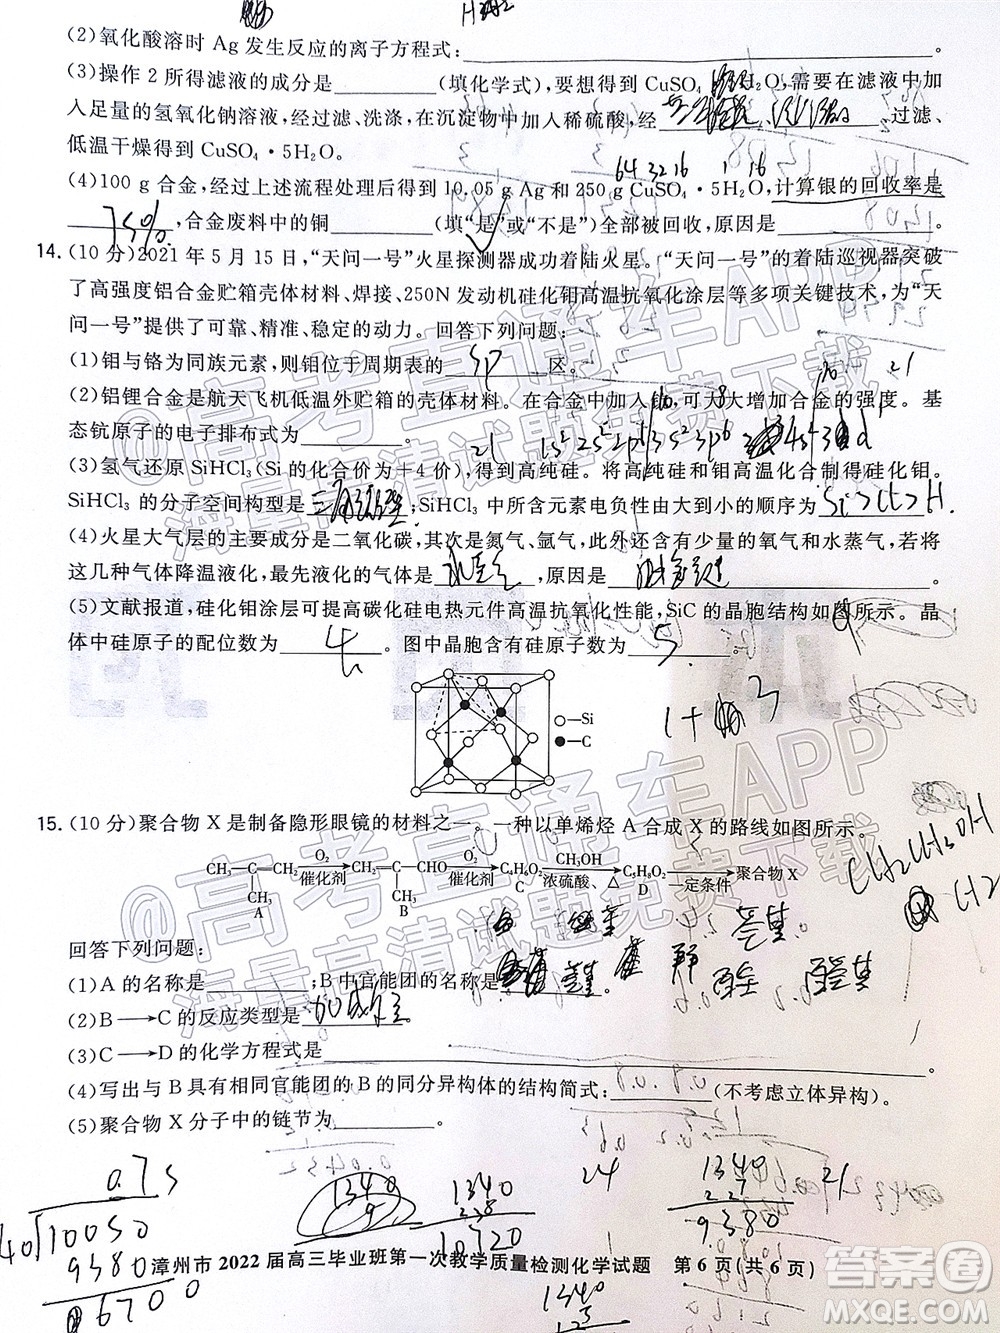 (2)氧化酸溶时 Ag 发生反应的离子方程式:。
(3)操作 2 所得滤液的成分是(填化学式),要想得到 CuSO₄ H₂O,需要在滤液中加
入足量的氢氧化钠溶液,经过滤、洗涤,在沉淀物中加入稀硫酸,经,过滤、
低温干燥得到 CuSO₄·5H₂O。
64 32 16 1 16
(4)100 g 合金,经过上述流程处理后得到 10.05 g Ag 和 250 g CuSO₄·5H₂O,计算银的回收率是
75%,合金废料中的铜(填“是”或“不是”)全部被回收,原因是。
14.(10 分)2021 年 5 月 15 日,“天问一号”火星探测器成功着陆火星。“天问一号”的着陆巡视器突破
了高强度铝合金贮箱壳体材料、焊接、250N 发动机硅化钼高温抗氧化涂层等多项关键技术,为“天
问一号”提供了可靠、精准、稳定的动力。回答下列问题:
(1)钼与铬为同族元素,则钼位于周期表的 sp 区。
21
(2)铝锂合金是航天飞机低温外贮箱的壳体材料。在合金中加入,可大大增加合金的强度。基
态钪原子的电子排布式为。
21 1s²2s²2p⁶3s²3p⁶
(3)氢气还原 SiHCl₃(Si 的化合价为+4 价),得到高纯硅。将高纯硅和钼高温化合制得硅化钼。
SiHCl₃ 的分子空间构型是;SiHCl₃ 中所含元素电负性由大到小的顺序为 Si>Cl>H.
(4)火星大气层的主要成分是二氧化碳,其次是氮气、氩气,此外,还含有少量的氧气和水蒸气,若将
这几种气体降温液化,最先液化的气体是水蒸气,原因是。
(5)文献报道,硅化钼涂层可提高碳化硅电热元件高温抗氧化性能,SiC 的晶胞结构如图所示。晶
体中硅原子的配位数为 4 。图中晶胞含有硅原子数为 5 。
Si
C
1+ 3
15.(10 分)聚合物 X 是制备隐形眼镜的材料之一。一种以单烯烃 A 合成 X 的路线如图所示。
CH₃—C=CH₂ O₂ 催化剂 CH₂=C—CHO O₂ 催化剂 C₄H₆O₂ CH₃OH 浓硫酸、△ C₅H₈O₂ 一定条件 聚合物 X
CH₃ CH₃ C D
A B
CH₂CH₂OH
回答下列问题:
(1)A 的名称是;B 中官能团的名称是
(2)B→C 的反应类型是加成反应
(3)C→D 的化学方程式是。
(4)写出与 B 具有相同官能团的 B 的同分异构体的结构简式:(不考虑立体异构)。
(5)聚合物 X 分子中的链节为。
0.75
10050
9380
6700
1340
1340
10720
24
1340
9380
21
漳州市 2022 届高三毕业班第一次教学质量检测化学试题 第 6 页(共 6 页)
1340
@高考直通车APP
海量高清试题免费下载
@高考直通车APP
海量高清试题免费下载
答案圈
MXQE.COM